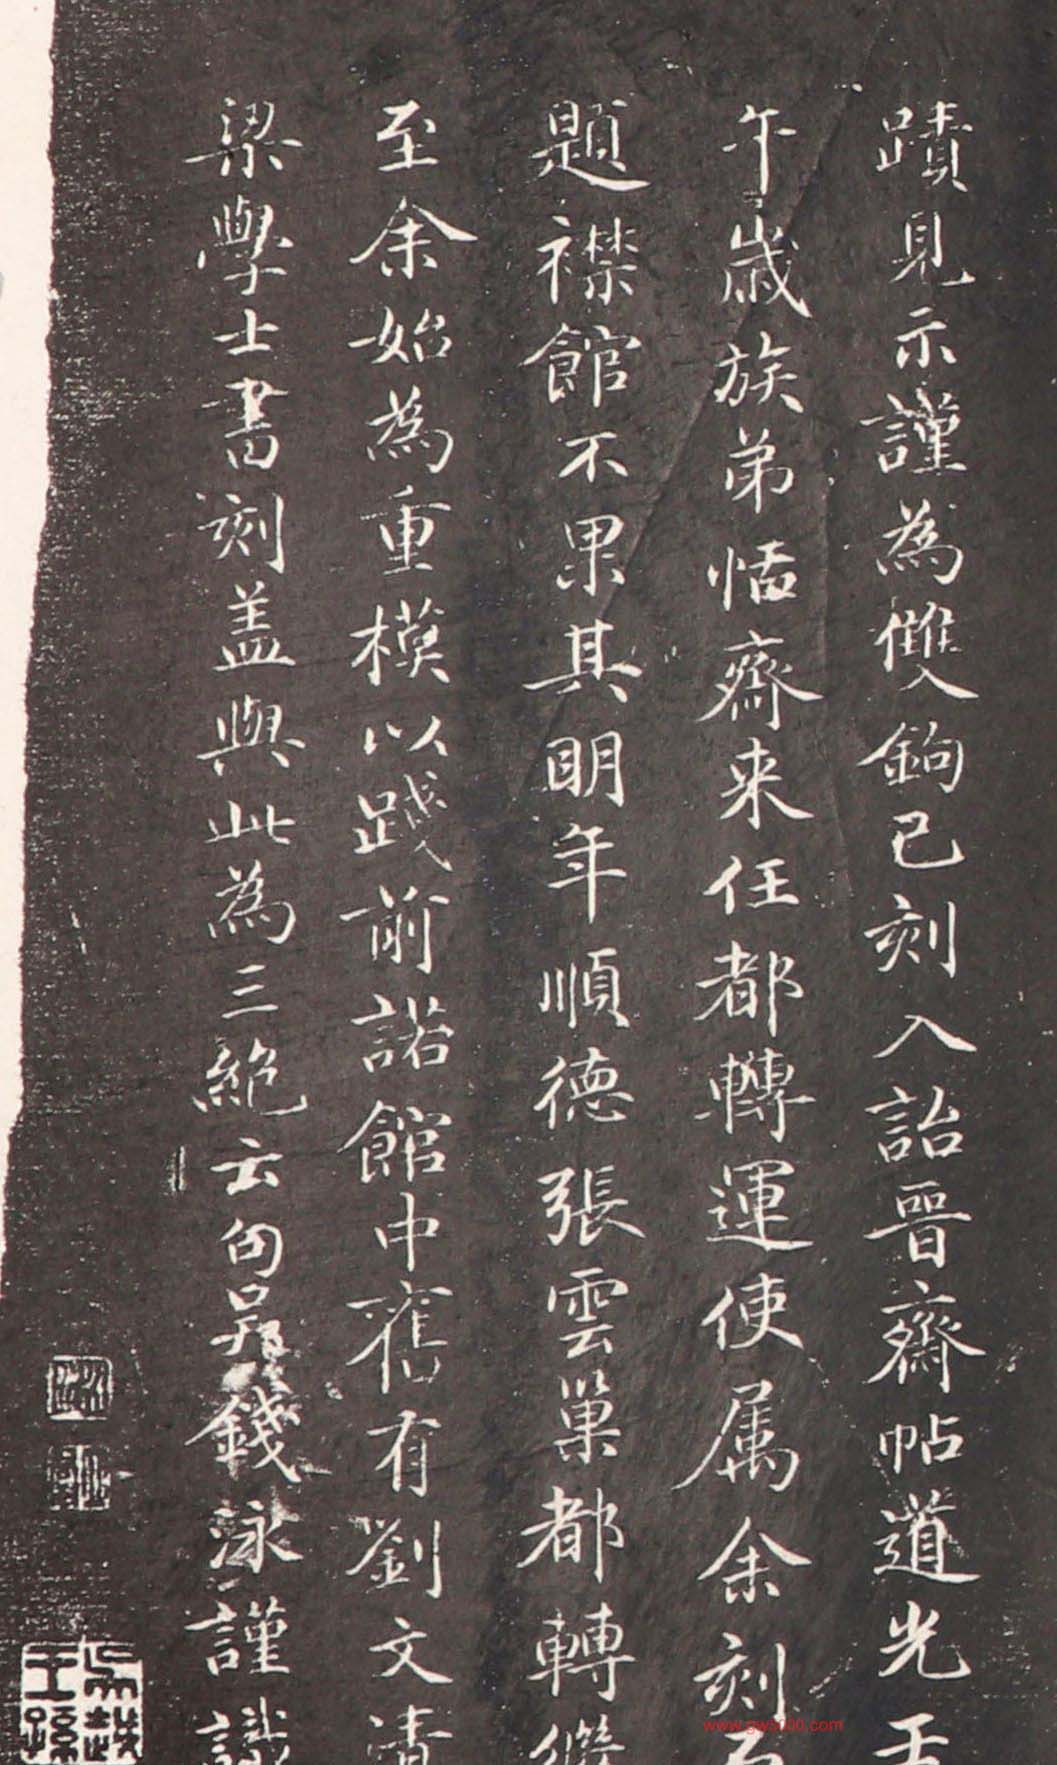 蹟見示謹為雙鉤已刻入詒晉齋帖道光壬
午歲族弟恬齋来任都轉運使属余刻石
題襟館不果其明年順德張雲巢都轉繼
至余始為重模以踐前諾館中舊有劉文清
梁學士書刻盖與此為三絕云勾吳錢泳謹識
www.gw5000.com